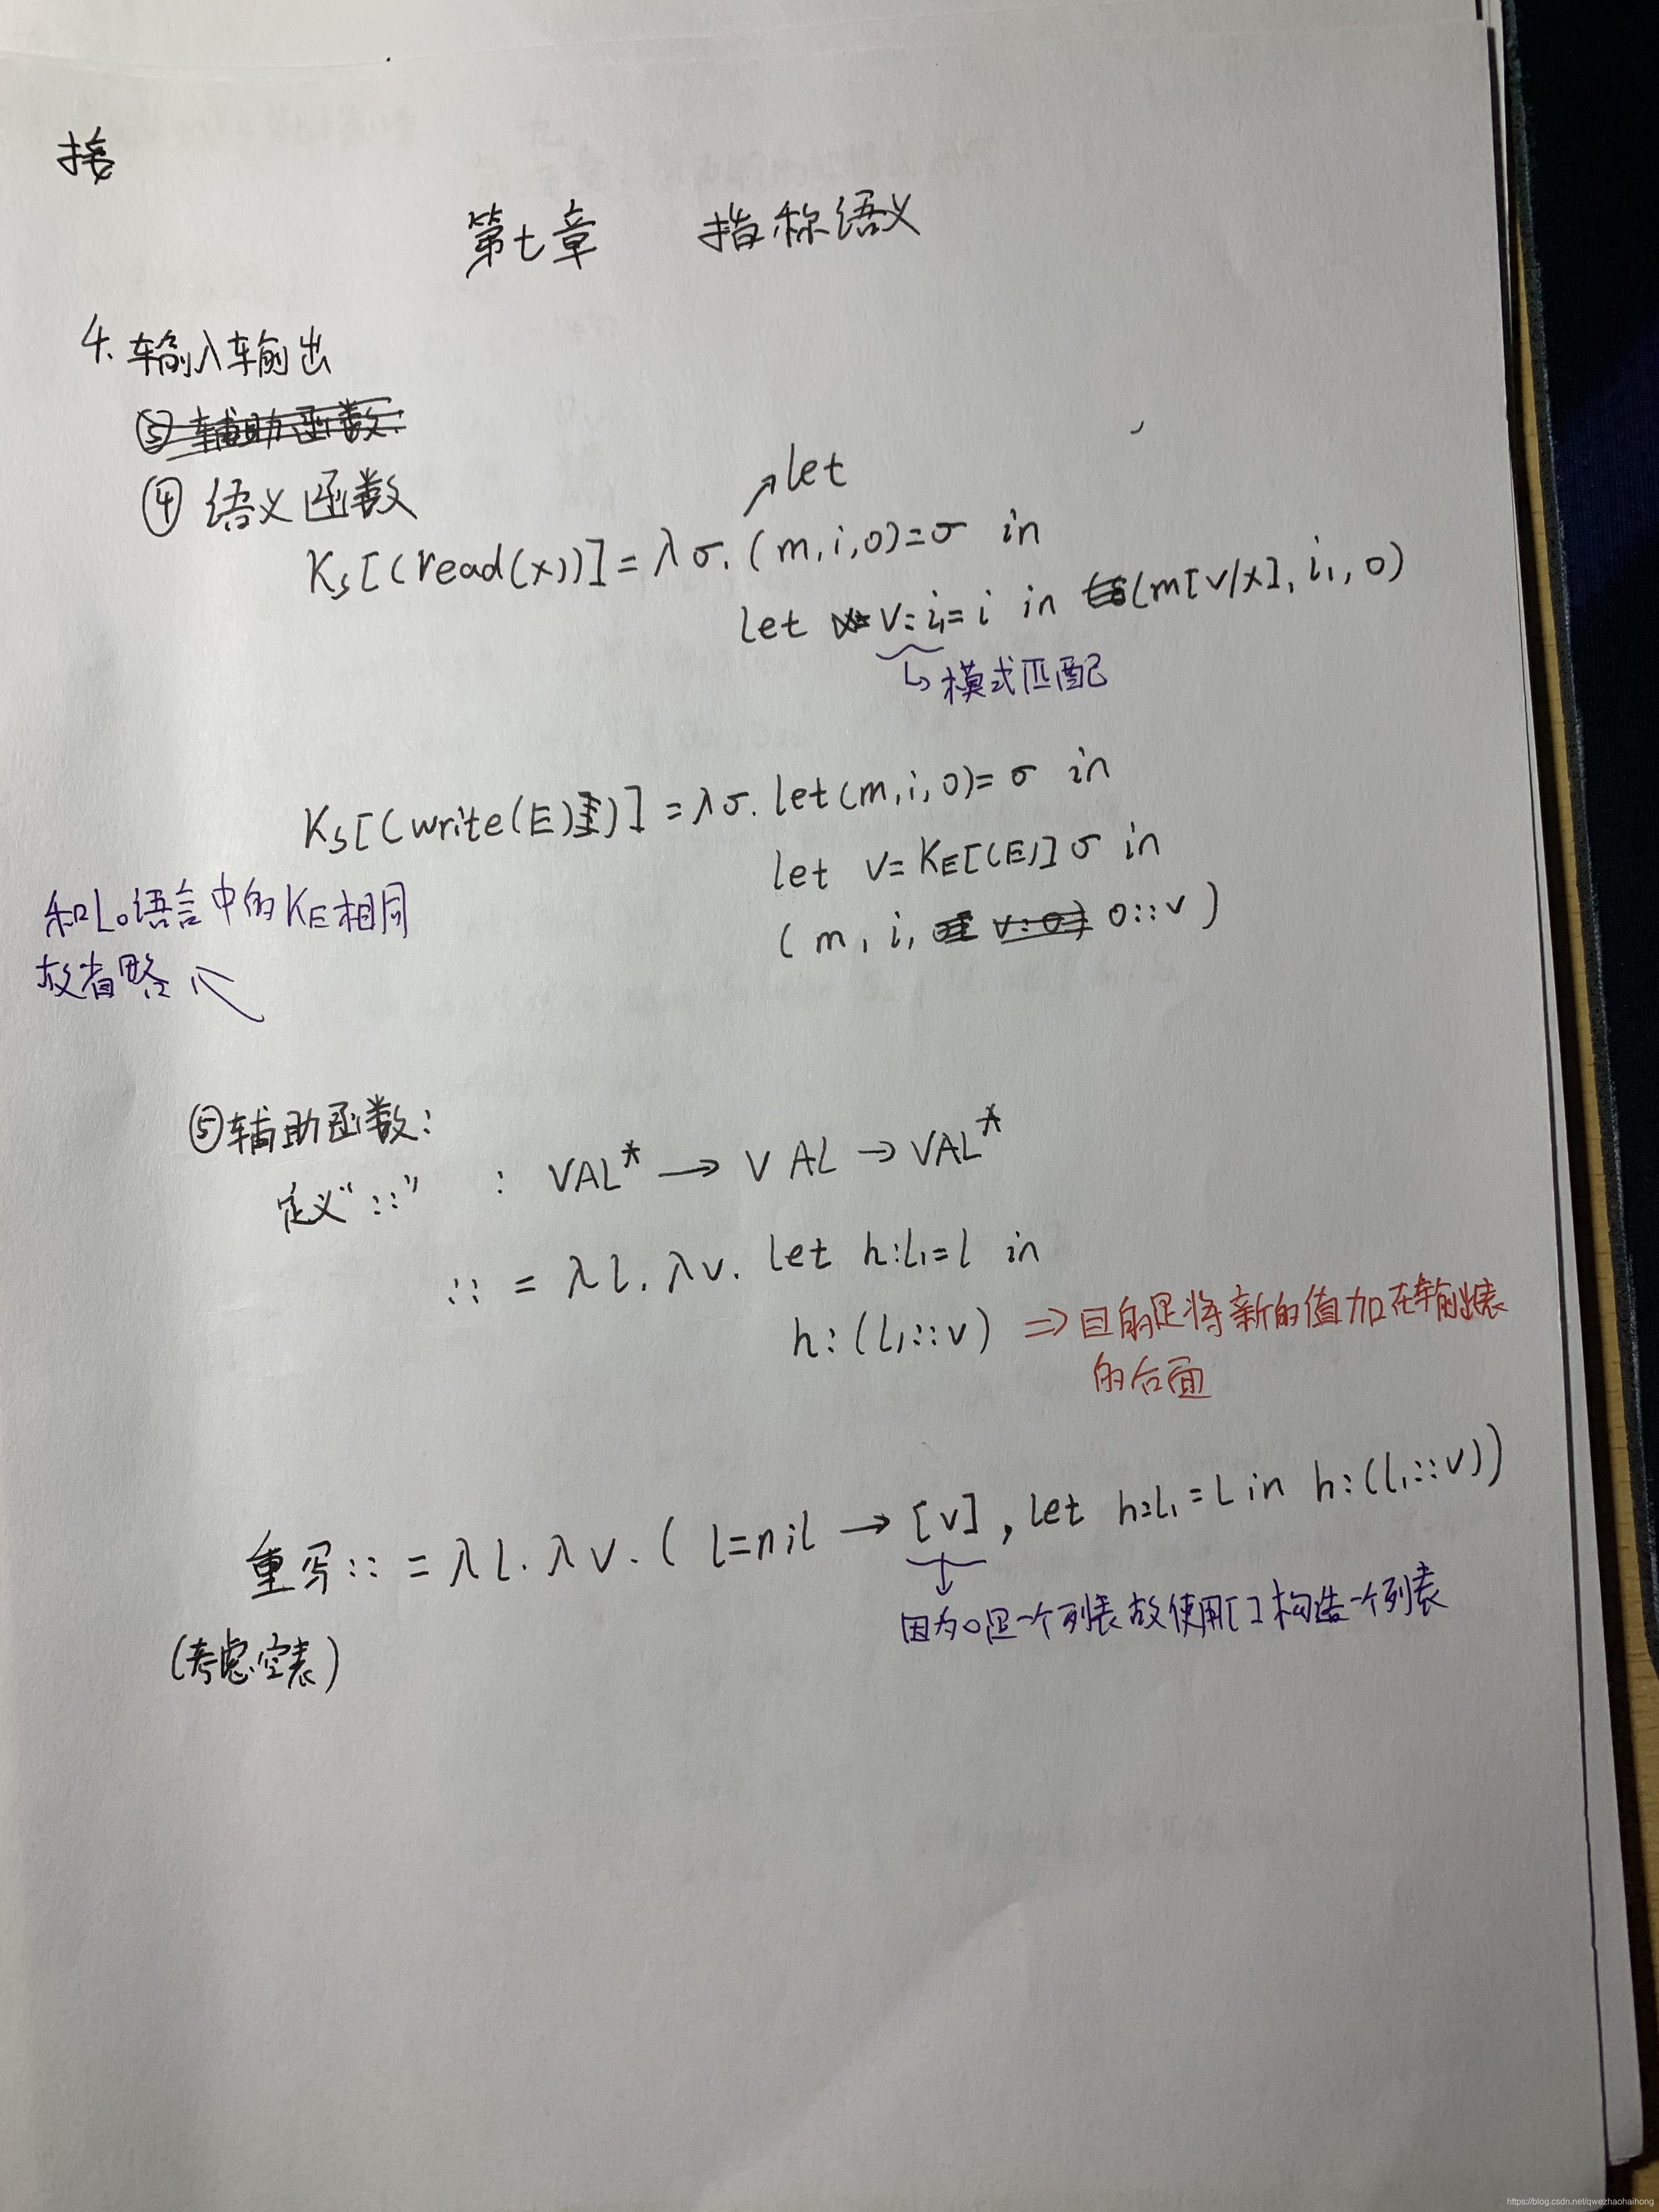 接
第七章 指称语义
4. 输入输出
⑤ 辅助函数:
④ 语义函数
let
Ks[(read(x))] = λσ. (m, i, o)=σ in
let v:i₁=i in (m[v/x], i₁, o)
模式匹配
Ks[(write(E))] = λσ. let(m, i, o)=σ in
let v=KE[(E)]σ in
(m, i, o::v)
和L₀语言中的KE相同
故省略
⑤辅助函数:
定义"::" : VAL* → VAL → VAL*
:: = λl. λv. let h:l₁=l in
h:(l₁::v) ⇒ 目的是将新的值加在输出表
的后面
重写:: = λl. λv. ( l=nil → [v], let h:l₁=l in h:(l₁::v))
因为o是一个列表故使用[]构造一个列表
(考虑空表)
https://blog.csdn.net/qwezhaohaihong